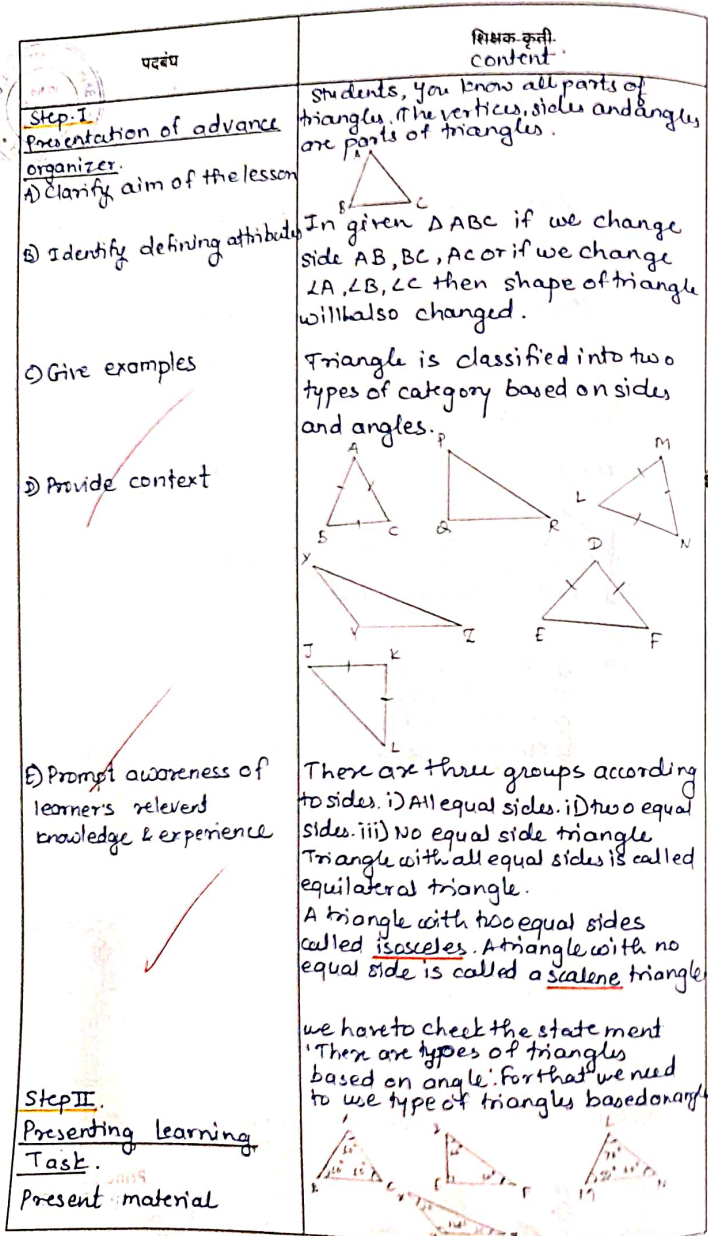 पदबंध
शिक्षक कृती
content
Step. I
Presentation of advance
organizer.
A) Clarify aim of the lesson
Students, you know all parts of
triangles. The vertices, sides and angles
are parts of triangles.
A
B
C
B) Identify defining attributes
In given Δ ABC if we change
side AB, BC, AC or if we change
∠A, ∠B, ∠C then shape of triangle
will also changed.
C) Give examples
Triangle is classified into two
types of category based on sides
and angles.
D) Provide context
A
B
C
P
Q
R
M
L
N
X
Y
Z
D
E
F
J
K
L
E) Prompt awareness of
learner's relevent
knowledge & experience
There are three groups according
to sides. i) All equal sides. ii) two equal
sides. iii) No equal side triangle
Triangle with all equal sides is called
equilateral triangle.
A triangle with two equal sides
called isosceles. A triangle with no
equal side is called a scalene triangle
we have to check the statement
'There are types of triangles
based on angle'. For that we need
to use type of triangles based on angle
Step II.
Presenting learning
Task.
Present material